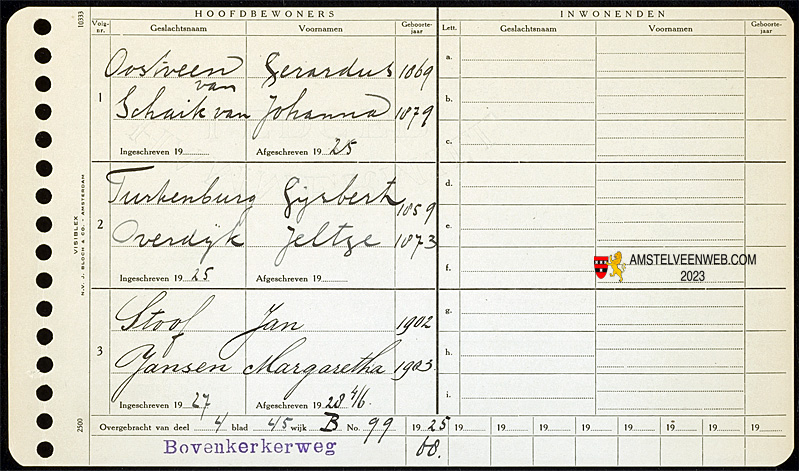 HOOFDBEWONERS INWONENDEN
Volg-nr. Geslachtsnaam Voornamen Geboorte-jaar Lett. Geslachtsnaam Voornamen Geboorte-jaar
Oostveen van Gerardus 1869
1 Schaik van Johanna 1879
Ingeschreven 19 Afgeschreven 19 25
a.
b.
c.
Turkenburg Gijsbert 1859
2 Overdijk Jeltze 1873
Ingeschreven 19 25 Afgeschreven 19
d.
e.
f.
Stoof Jan 1902
3 Jansen Margaretha 1903
Ingeschreven 19 27 Afgeschreven 19 28 4/6
g.
h.
i.
Overgebracht van deel 4 blad 45 wijk B No. 99 19 25 19 19 19 19 19 19 19 19
68.
Bovenkerkerweg
10333
VISIBLEX
N.V. J. BLOCH & CO. - AMSTERDAM
2500
AMSTELVEENWEB.COM
2023